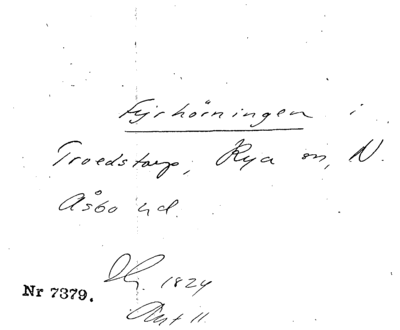 Fyrhörningen i
Troedstorp, Rya sn, N.
Åsbo hd.
1824
Nr 7379.
Avst 11